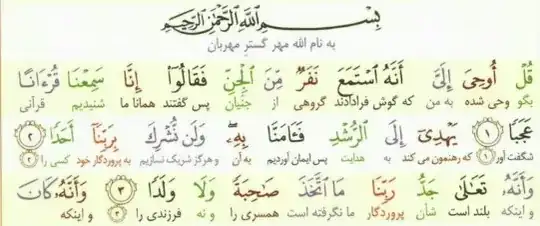 بِسْمِ اللَّهِ الرَّحْمَٰنِ الرَّحِيمِ
به نام الله مهر گستر مهربان
قُلْ أُوحِيَ إِلَيَّ أَنَّهُ ٱسْتَمَعَ نَفَرٌ مِّنَ ٱلْجِنِّ فَقَالُوٓا۟ إِنَّا سَمِعْنَا قُرْءَانًا
بگو وحی شده به من که گوش فرادادند گروهی از جنیان پس گفتند همانا ما شنیدیم قرآنی
عَجَبًا ١ يَهْدِىٓ إِلَى ٱلرُّشْدِ فَـَٔامَنَّا بِهِۦ وَلَن نُّشْرِكَ بِرَبِّنَآ أَحَدًا ٢
شگفت آور ١ که رهنمون می کند به هدایت پس ایمان آوردیم به آن و هرگز شریک نسازیم به پروردگار خود کسی را ٢
وَأَنَّهُۥ تَعَٰلَىٰ جَدُّ رَبِّنَا مَا ٱتَّخَذَ صَٰحِبَةً وَلَا وَلَدًا ٣ وَأَنَّهُۥ كَانَ
و اینکه بلند است شأن پروردگار ما نگرفته است همسری را و نه فرزندی را ٣ و اینکه